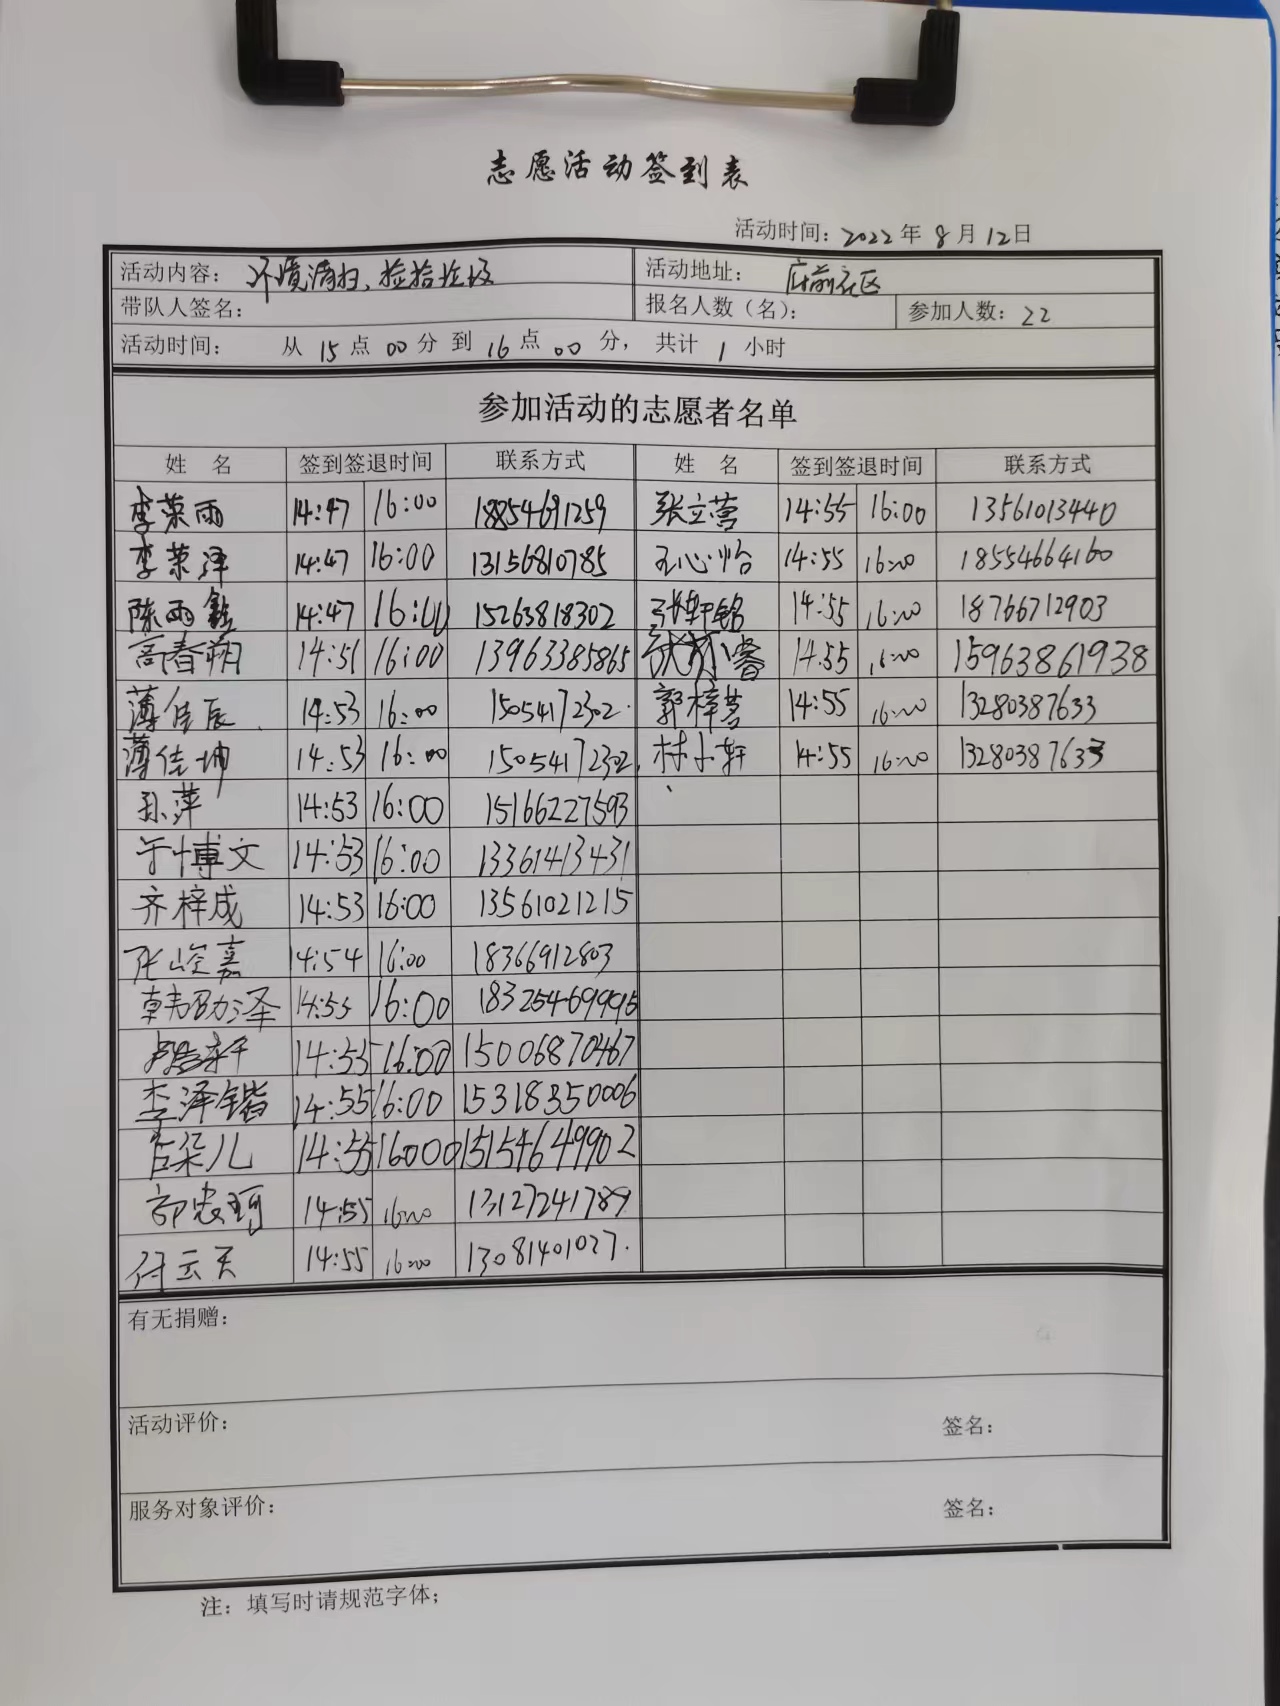 志愿活动签到表
活动时间：2022年8月12日
活动内容：环境清扫、捡拾垃圾 活动地址：府前社区
带队人签名： 报名人数（名）： 参加人数：22
活动时间： 从 15 点 00 分 到 16 点 00 分，共计 1 小时
参加活动的志愿者名单
姓 名 签到签退时间 联系方式 姓 名 签到签退时间 联系方式
李荣雨 14:47 16:00 18854691259 张立营 14:55 16:00 13561013440
李荣泽 14:47 16:00 13156810785 王心怡 14:55 16:00 18554664160
陈雨鑫 14:47 16:00 15263818302 张轩铭 14:55 16:00 18766712903
高春朔 14:51 16:00 13963385865 14:55 16:00 15963861938
薄佳辰 14:53 16:00 15054172302 郭梓茗 14:55 16:00 13280387633
薄佳坤 14:53 16:00 15054172302 林小轩 14:55 16:00 13280387633
孙萍 14:53 16:00 15166227593
于博文 14:53 16:00 13361413431
齐梓成 14:53 16:00 13561021215
张峻嘉 14:54 16:00 18366912803
韩劭泽 14:55 16:00 18325469995
14:55 16:00 15006870467
李泽锴 14:55 16:00 15318350006
吕朵儿 14:55 16:00 15154649902
郭忠珂 14:55 16:00 13127241789
付云天 14:55 16:00 13081401027
有无捐赠：
活动评价： 签名：
服务对象评价： 签名：
注：填写时请规范字体；